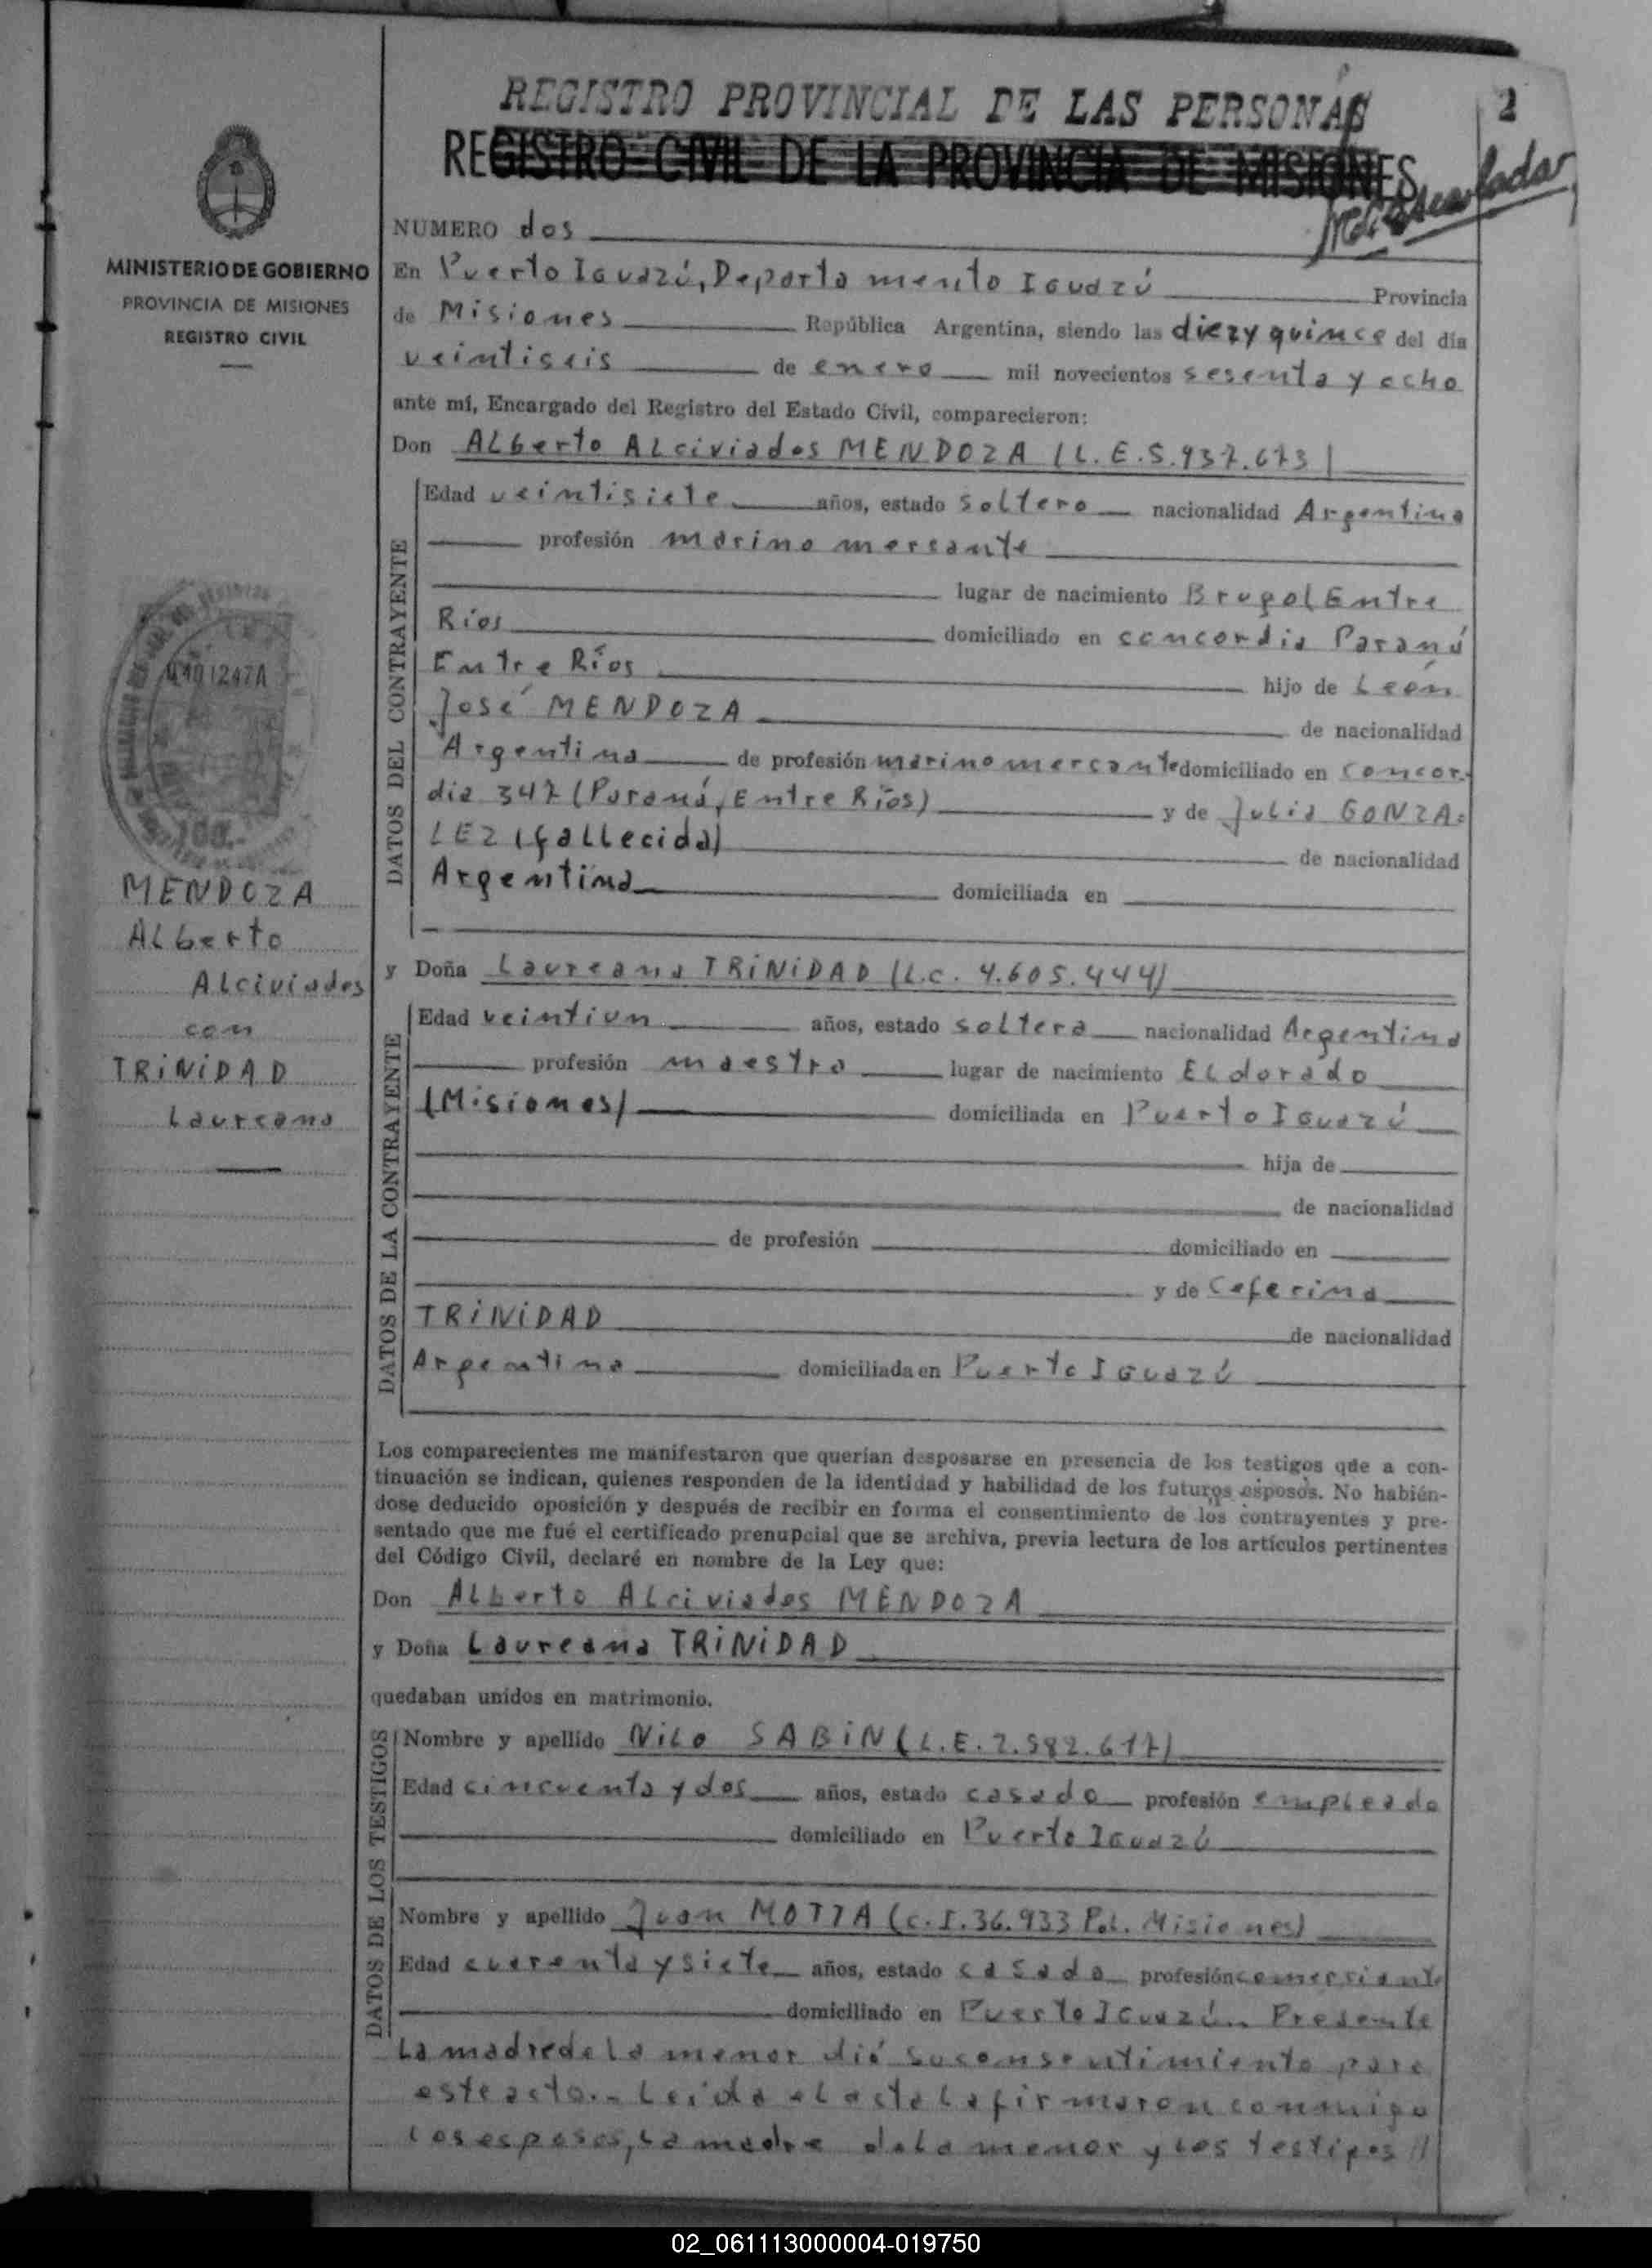 REGISTRO PROVINCIAL DE LAS PERSONAS
2
REGISTRO CIVIL DE LA PROVINCIA DE MISIONES
MINISTERIO DE GOBIERNO
PROVINCIA DE MISIONES
REGISTRO CIVIL
NUMERO dos
En Puerto Iguazú, Departamento Iguazú Provincia
de Misiones República Argentina, siendo las diez y quince del día
veintiseis de enero mil novecientos sesenta y ocho
ante mí, Encargado del Registro del Estado Civil, comparecieron:
Don Alberto Alciviades MENDOZA (L.E.5.937.673)
DATOS DEL CONTRAYENTE
Edad veintisiete años, estado soltero nacionalidad Argentina
profesión marino mercante
lugar de nacimiento Brugol Entre
Ríos domiciliado en concordia Paraná
Entre Ríos hijo de León
José MENDOZA de nacionalidad
Argentina de profesión marino mercante domiciliado en concor-
dia 347 (Paraná, Entre Ríos) y de Julia GONZA=
LEZ (fallecida) de nacionalidad
Argentina domiciliada en
100.-
MENDOZA
Alberto
Alciviades
con
TRINIDAD
Laureana
y Doña Laureana TRINIDAD (L.C. 4.605.444)
DATOS DE LA CONTRAYENTE
Edad veintiun años, estado soltera nacionalidad Argentina
profesión maestra lugar de nacimiento Eldorado
(Misiones) domiciliada en Puerto Iguazú
hija de
de nacionalidad
de profesión domiciliado en
y de Ceferina
TRINIDAD de nacionalidad
Argentina domiciliada en Puerto Iguazú
Los comparecientes me manifestaron que querían desposarse en presencia de los testigos que a con-
tinuación se indican, quienes responden de la identidad y habilidad de los futuros esposos. No habién-
dose deducido oposición y después de recibir en forma el consentimiento de los contrayentes y pre-
sentado que me fué el certificado prenupcial que se archiva, previa lectura de los artículos pertinentes
del Código Civil, declaré en nombre de la Ley que:
Don Alberto Alciviades MENDOZA
y Doña Laureana TRINIDAD
quedaban unidos en matrimonio.
DATOS DE LOS TESTIGOS
Nombre y apellido Nilo SABIN (L.E.2.582.617)
Edad cincuenta y dos años, estado casado profesión empleado
domiciliado en Puerto Iguazú
Nombre y apellido Juan MOTTA (C.I.36.933 Pol. Misiones)
Edad cuarenta y siete años, estado casado profesión comerciante
domiciliado en Puerto Iguazú.. Presente
la madre de la menor dió su consentimiento para
este acto.- Leída el acta la firmaron conmigo
los esposos, la madre de la menor y los testigos //
02_061113000004-019750